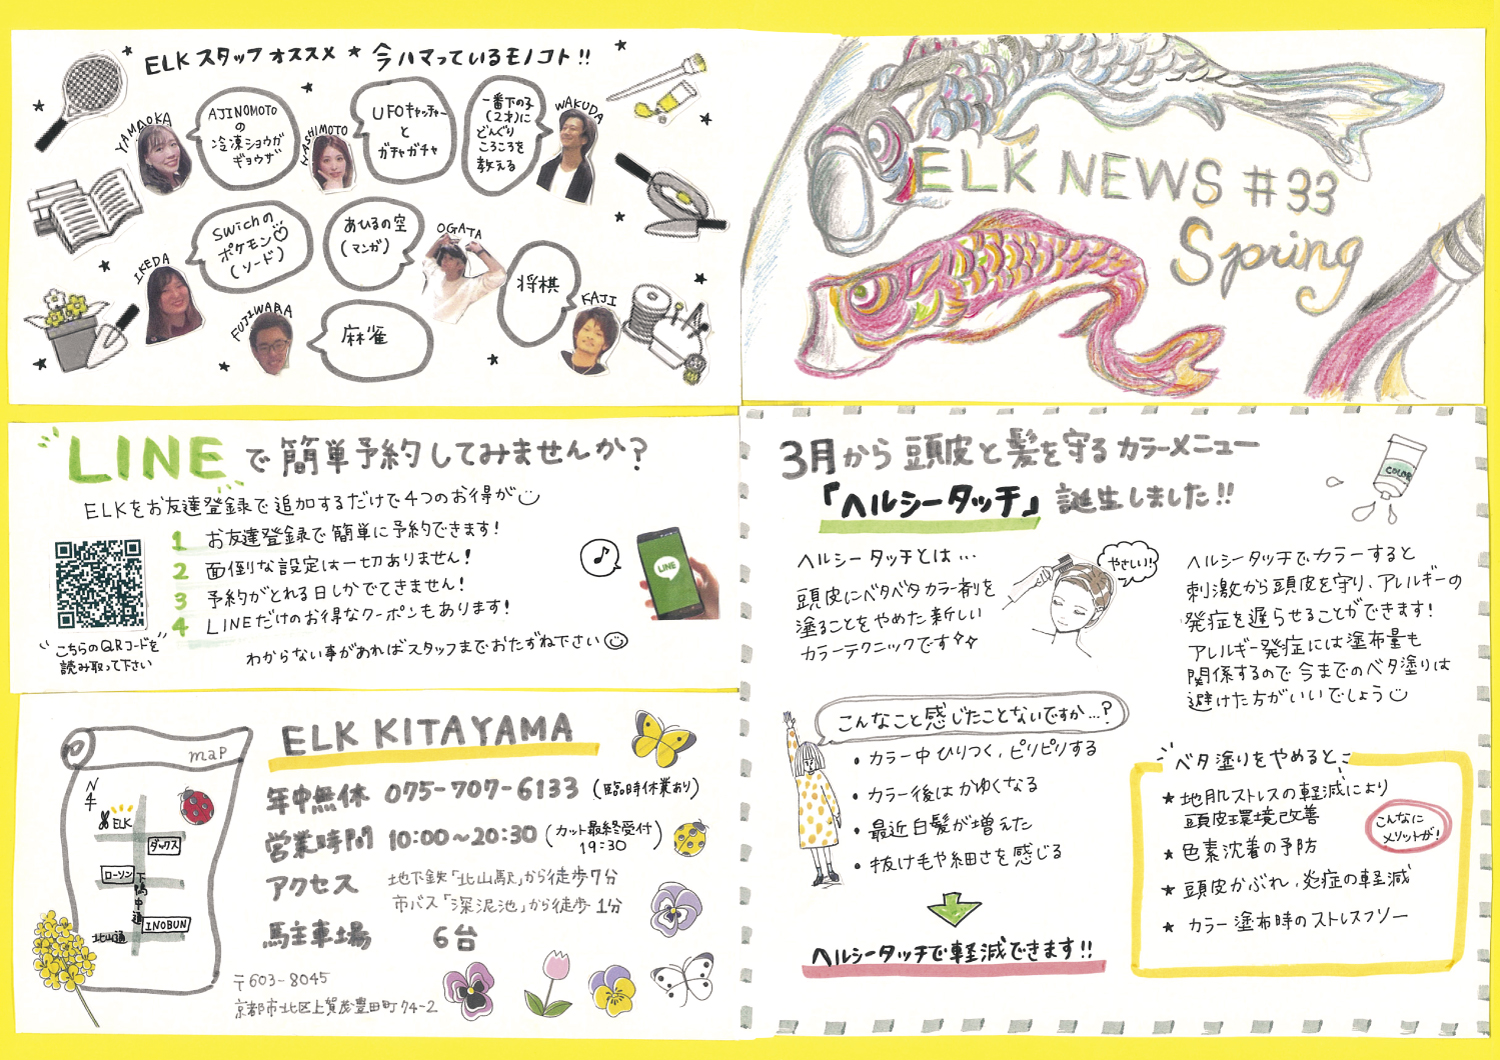 ELK スタッフ オススメ ★ 今ハマっているモノコト!!
YAMAOKA
AJINOMOTO
の
冷凍ショウガ
ギョウザ
HASHIMOTO
UFOキャッチャー
と
ガチャガチャ
一番下の子
(2才)に
どんぐり
ころころを
教える
WAKUDA
IKEDA
Swichの
ポケモン
(ソード)
あひるの空
(マンガ)
OGATA
FUJIWARA
麻雀
将棋
KAJI
ELK NEWS #33
Spring
LINEで簡単予約してみませんか?
ELKをお友達登録で追加するだけで4つのお得が
1 お友達登録で簡単に予約できます!
2 面倒な設定は一切ありません!
3 予約がとれる日しかでてきません!
4 LINEだけのお得なクーポンもあります!
こちらのQRコードを
読み取って下さい
わからない事があればスタッフまでおたずね下さい
♪
LINE
3月から頭皮と髪を守るカラーメニュー
「ヘルシータッチ」誕生しました!!
COLOR
ヘルシータッチとは...
頭皮にベタベタカラー剤を
塗ることをやめた新しい
カラーテクニックです
やさしい!!
ヘルシータッチでカラーすると
刺激から頭皮を守り、アレルギーの
発症を遅らせることができます!
アレルギー発症には塗布量も
関係するので今までのベタ塗りは
避けた方がいいでしょう
こんなこと感じたことないですか...?
・カラー中ひりつく、ピリピリする
・カラー後はかゆくなる
・最近白髪が増えた
・抜け毛や細さを感じる
ヘルシータッチで軽減できます!!
ベタ塗りをやめると
★地肌ストレスの軽減により
頭皮環境改善
★色素沈着の予防
★頭皮かぶれ、炎症の軽減
★カラー塗布時のストレスフリー
こんなに
メリットが!
map
N
ELK
ダックス
ローソン
下鴨中通
INOBUN
北山通
ELK KITAYAMA
年中無休 075-707-6133 (臨時休業あり)
営業時間 10:00〜20:30 (カット最終受付
19:30)
アクセス 地下鉄「北山駅」から徒歩7分
市バス「深泥池」から徒歩1分
駐車場 6台
〒603-8045
京都市北区上賀茂豊田町74-2